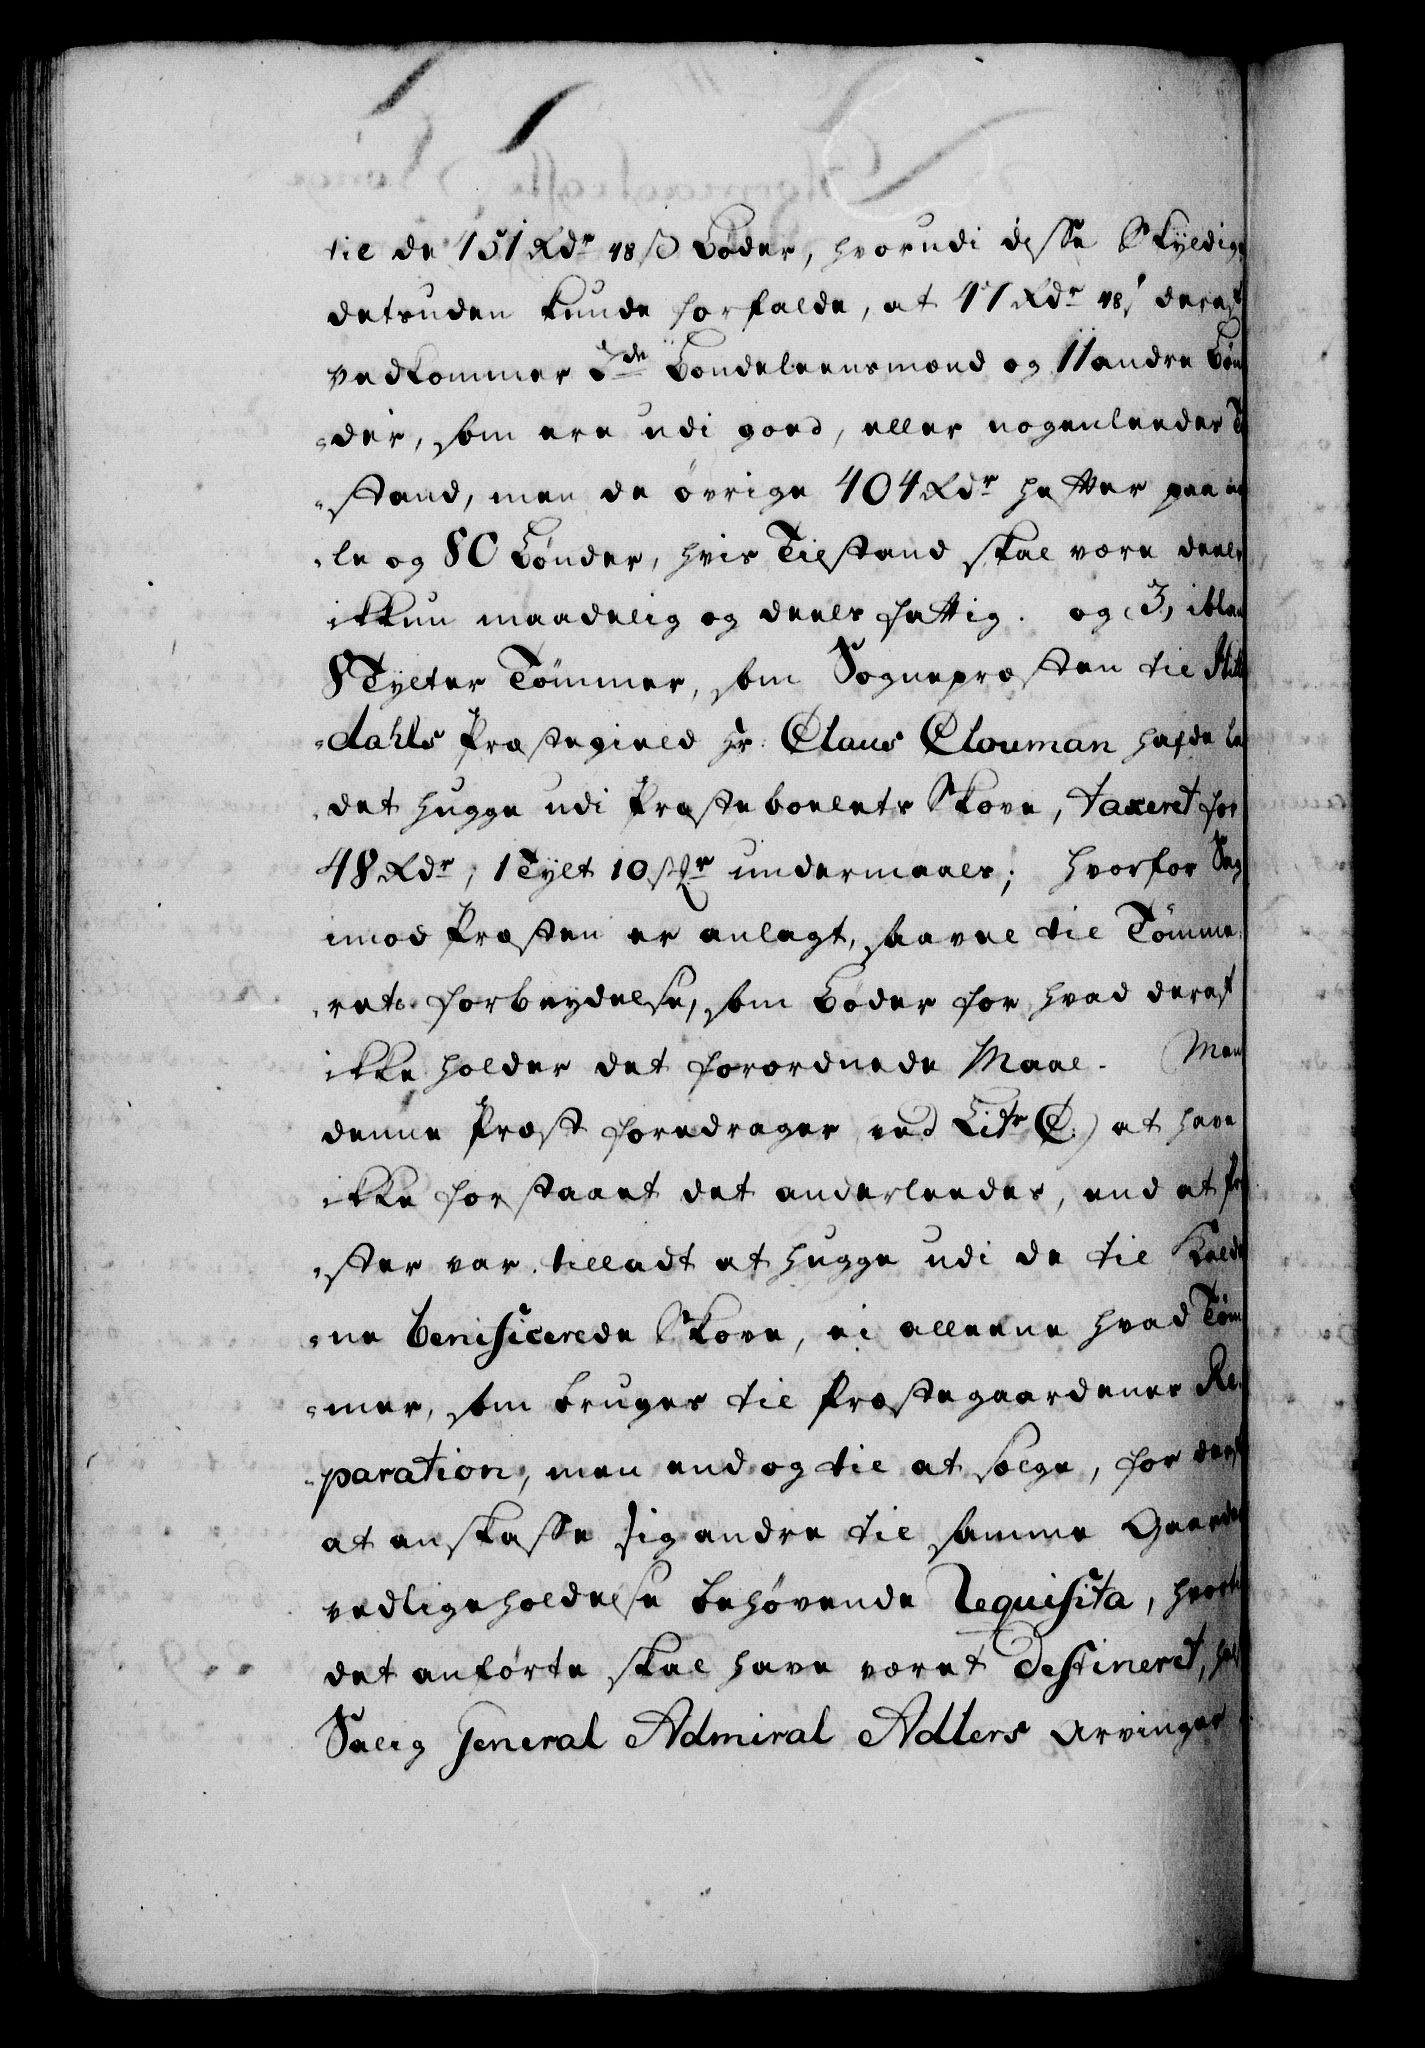 til de 451 Rdr 48 ß Bøder, hvorudi disse Skyldige
desuden kunde forfalde, at 47 Rdr 48 ß deraf
vedkommer 3de Bondeleensmænd og 11 andre Bøn
=der, som ere udi goed, eller nogenleedes
=stand, men de øvrige 404 Rdr hefter paa
=le og 80 Bønder, hvis Tilstand skal være deels
ikkun maadelig og deels fattig. og 3, iblan
8 Tylter Tømmer, som Sognepræsten til Hit
=dahls Præstegield Hr: Claus Clouman hafde la
=det hugge udi Præsteboelets Skove, taxeret for
48 Rdr, 1 Tylt 10 stkr undermaals; hvorfor Sag
imod Præsten er anlagt, saavel til Tømme
=rets forbrydelse, som Bøder for hvad deraf
ikke holder det forordnede Maal. Men
denne Præst foredrager (ved Litr C.) at have
ikke forstaaet det anderleedes, end at Præ
=ster var tilladt at hugge udi de til Kalde
=ne beneficerede Skove, ei alleene hvad Tøm
=mer, som bruges til Præstegaardenes Re
=paration, men endog til at sælge, for derf
at anskaffe sig andre til samme Gaardes
vedligeholdelse behøvende Requisita, hvortil
det anførte skal have været destineret,
Salig General Admiral Adlers Arvinger